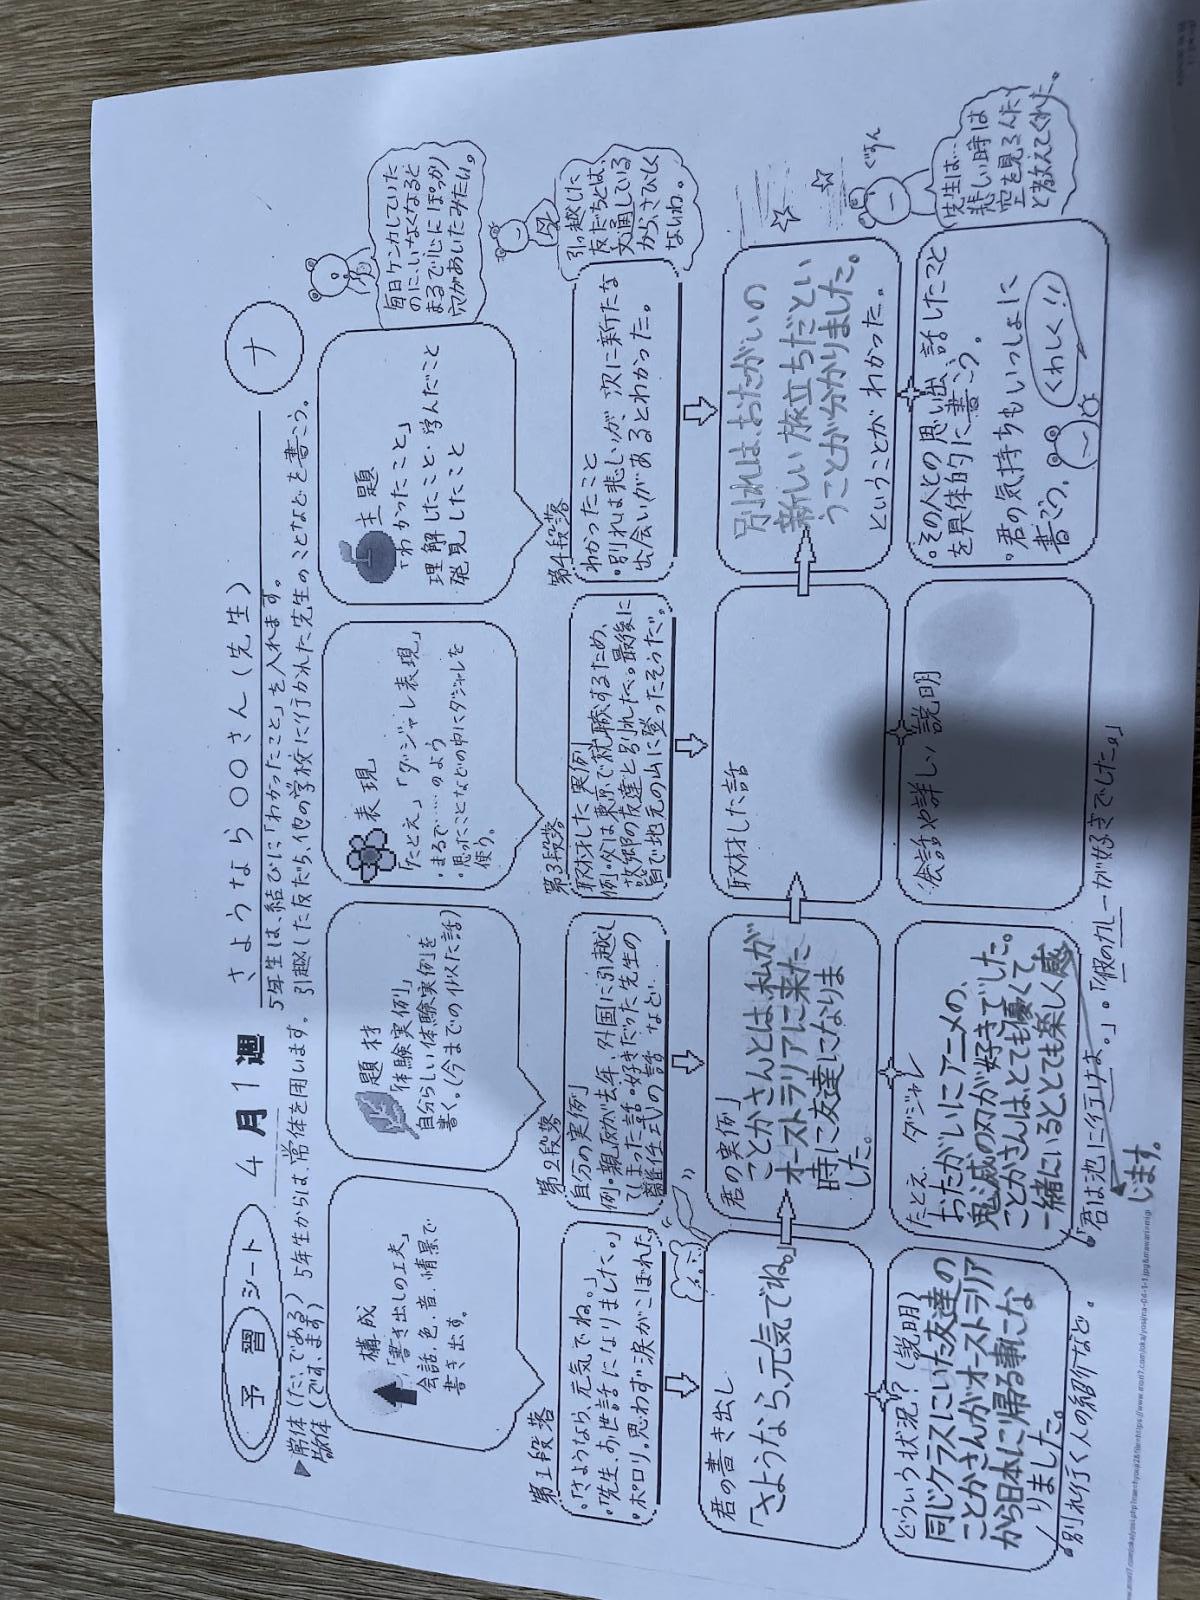 予習シート 4月1週 さようなら〇〇さん(先生) ナ
▶常体(た、である)
敬体(です、ます)
5年生からは、常体を用います。
5年生は、結びに「わかったこと」を入れます。
引越した友だち、他の学校に行かれた先生のことなどを書こう。
構成
「書き出しの工夫」
会話、色、音、情景で
書き出す。
題材
「体験実例」
自分らしい体験実例を
書く。(今までの似た話)
表現
「たとえ」「ダジャレ表現」
・まるで……のよう
・思ったことなどの中にダジャレを
使う。
主題
「わかったこと」
理解したこと・学んだこと
発見したこと
毎日ケンカしていた
のに、いなくなると
まるで心にぽっかり
穴があいたみたい。
第1段落
・「さようなら、元気でね。」
・「先生、お世話になりました。」
・ポロリ。思わず涙がこぼれた
第2段落
自分の実例
例・親友が去年、外国に引越し
てしまった話・好きだった先生の
離任式の話 など…
第3段落
取材した実例
例・父は東京で就職するため、
故郷の友達と別れたべ。最後に
皆で地元の山に登ったそうだ。
第4段落
わかったこと
・別れは悲しいが、次に新たな
出会いがあるとわかった。
引っ越した
友だちとは、
文通している
から、さびしく
ないわ。
君の書き出し
「さようなら、元気でね。」
君の実例
ことかさんとは、私が
オーストラリアに来た
時に友達になりま
した。
取材した話
別れは、おたがいの
新しい旅立ちだとい
うことが分かりました。
ということがわかった。
ぐすん
どういう状況?(説明)
同じクラスにいた友達の
ことかさんがオーストラリア
から日本に帰る事にな
りました。
・別れ行く人の紹介など。
たとえ ダジャレ
おたがいにアニメの、
鬼滅の刃が好きでした。
ことかさんは、とても優くて
一緒にいるととても楽しく感
じます。
・「君は池に行けよ。」・「彼のカレーが好きでした。」
会話や詳しい説明
・その人との思い出、話したこと
を具体的に書こう。
・君の気持ちもいっしょに
書こう。
くわしく!!
先生は…
悲しい時は
空を見るんだよ
と教えてくれた。